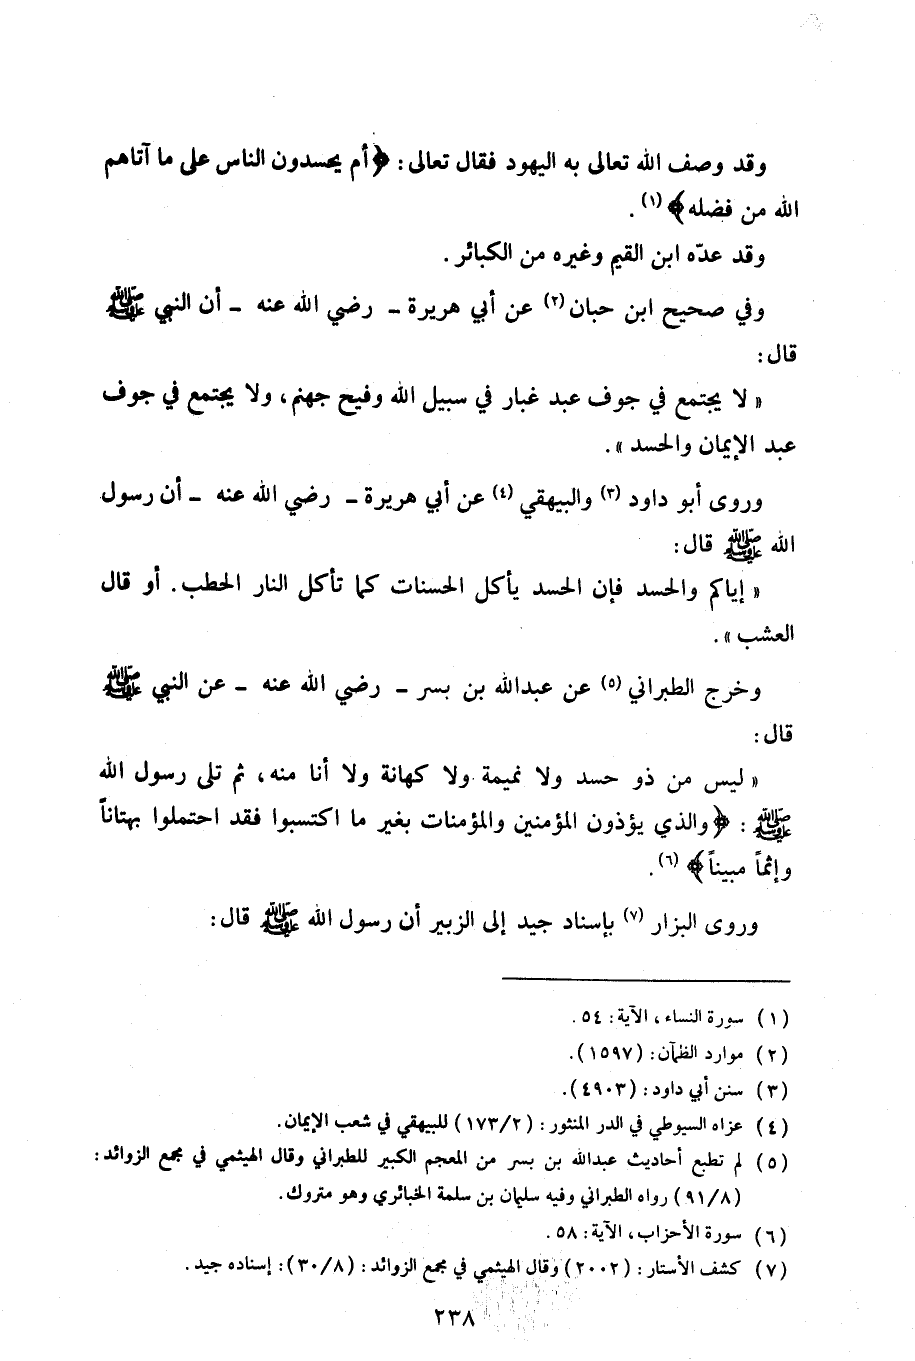 وقد وصف الله تعالى به اليهود فقال تعالى: ﴿أم يحسدون الناس على ما آتاهم
الله من فضله﴾ (١) .
وقد عدّه ابن القيم وغيره من الكبائر .
وفي صحيح ابن حبان (٢) عن أبي هريرة ـ رضي الله عنه ـ أن النبي ﷺ
قال:
« لا يجتمع في جوف عبد غبار في سبيل الله وفيح جهنم، ولا يجتمع في جوف
عبد الإيمان والحسد ».
وروى أبو داود (٣) والبيهقي (٤) عن أبي هريرة ـ رضي الله عنه ـ أن رسول
الله ﷺ قال:
« إياكم والحسد فإن الحسد يأكل الحسنات كما تأكل النار الحطب. أو قال
العشب ».
وخرج الطبراني (٥) عن عبدالله بن بسر ـ رضي الله عنه ـ عن النبي ﷺ
قال:
« ليس من ذو حسد ولا نميمة ولا كهانة ولا أنا منه، ثم تلى رسول الله
ﷺ : ﴿والذي يؤذون المؤمنين والمؤمنات بغير ما اكتسبوا فقد احتملوا بهتاناً
وإثماً مبيناً﴾ (٦).
وروى البزار (٧) بإسناد جيد إلى الزبير أن رسول الله ﷺ قال:
(١) سورة النساء، الآية: ٥٤.
(٢) موارد الظمآن: (١٥٩٧).
(٣) سنن أبي داود: (٤٩٠٣).
(٤) عزاه السيوطي في الدر المنثور: (١٧٣/٢) للبيهقي في شعب الإيمان.
(٥) لم تطبع أحاديث عبدالله بن بسر من المعجم الكبير للطبراني وقال الهيثمي في مجمع الزوائد:
(٩١/٨) رواه الطبراني وفيه سليمان بن سلمة الخبائري وهو متروك.
(٦) سورة الأحزاب، الآية: ٥٨.
(٧) كشف الأستار: (٢٠٠٢) وقال الهيثمي في مجمع الزوائد: (٣٠/٨): إسناده جيد.
٢٣٨